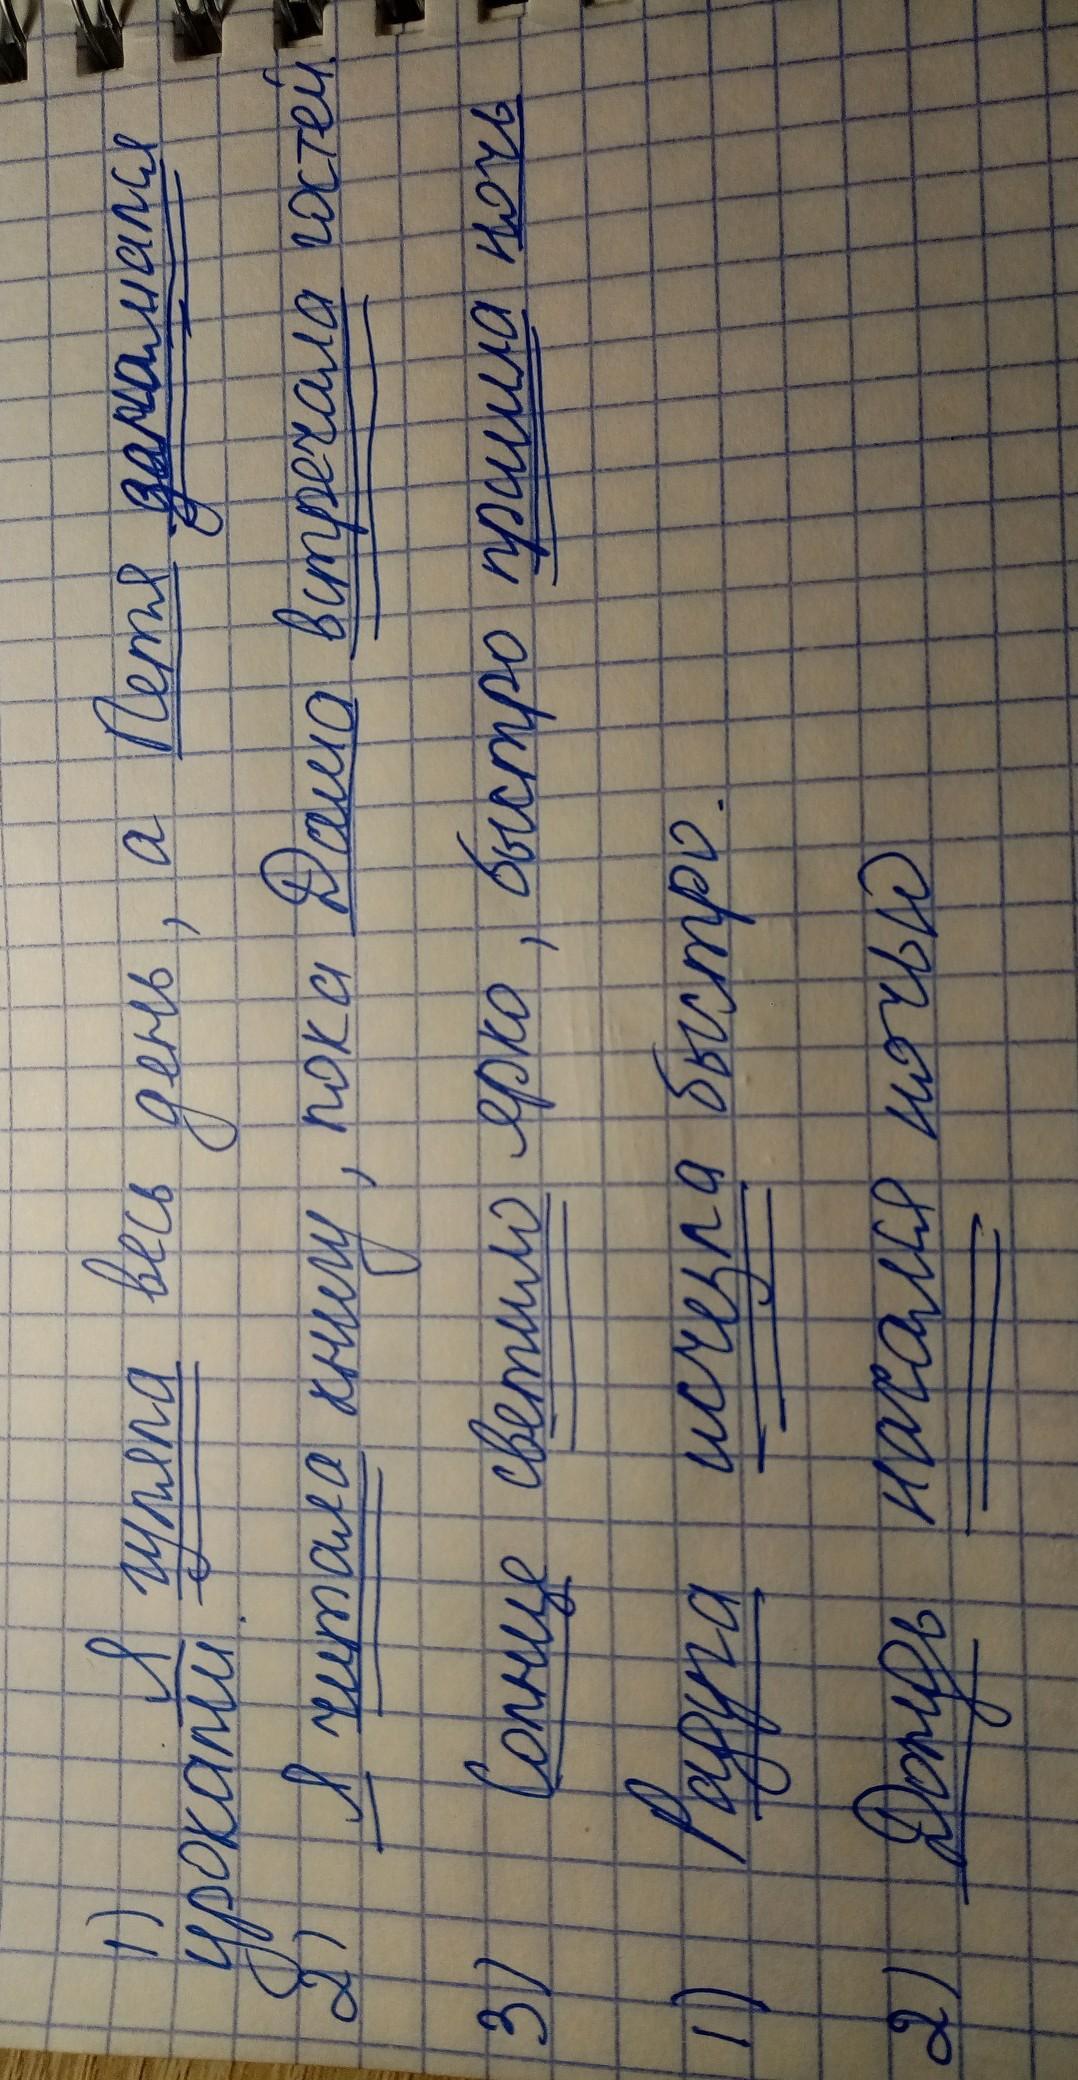 1) Я гуляла весь день, а Петя занимался
уроками.
2) Я читала книгу, пока Даша встречала гостей.
3) Солнце светило ярко, быстро пришла ночь
1) Радуга исчезла быстро.
2) Дождь начался ночью